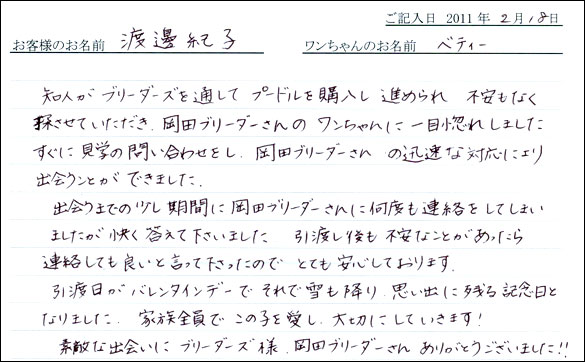 ご記入日 2011年2月18日
お客様のお名前 渡邊紀子 ワンちゃんのお名前 ベティー
知人がブリーダーズを通して プードルを購入し 進められ 不安もなく
探させていただき、岡田ブリーダーさんの ワンちゃんに一目惚れしました
すぐに見学の問い合わせをし、岡田ブリーダーさん の迅速な対応により
出会うことが できました、
出会うまでの少し期間に岡田ブリーダーさんに何度も連絡をしてしまい
ましたが快く答えて下さいました 引渡し後も不安なことがあったら
連絡しても良いと言って下さったので とても安心しております、
引渡日がバレンタインデーで それで雪も降り、思い出に残る記念日と
なりました、 家族全員で この子を愛し、大切にしていきます!
素敵な出会いに ブリーダーズ様、岡田ブリーダーさん ありがとうございました!!